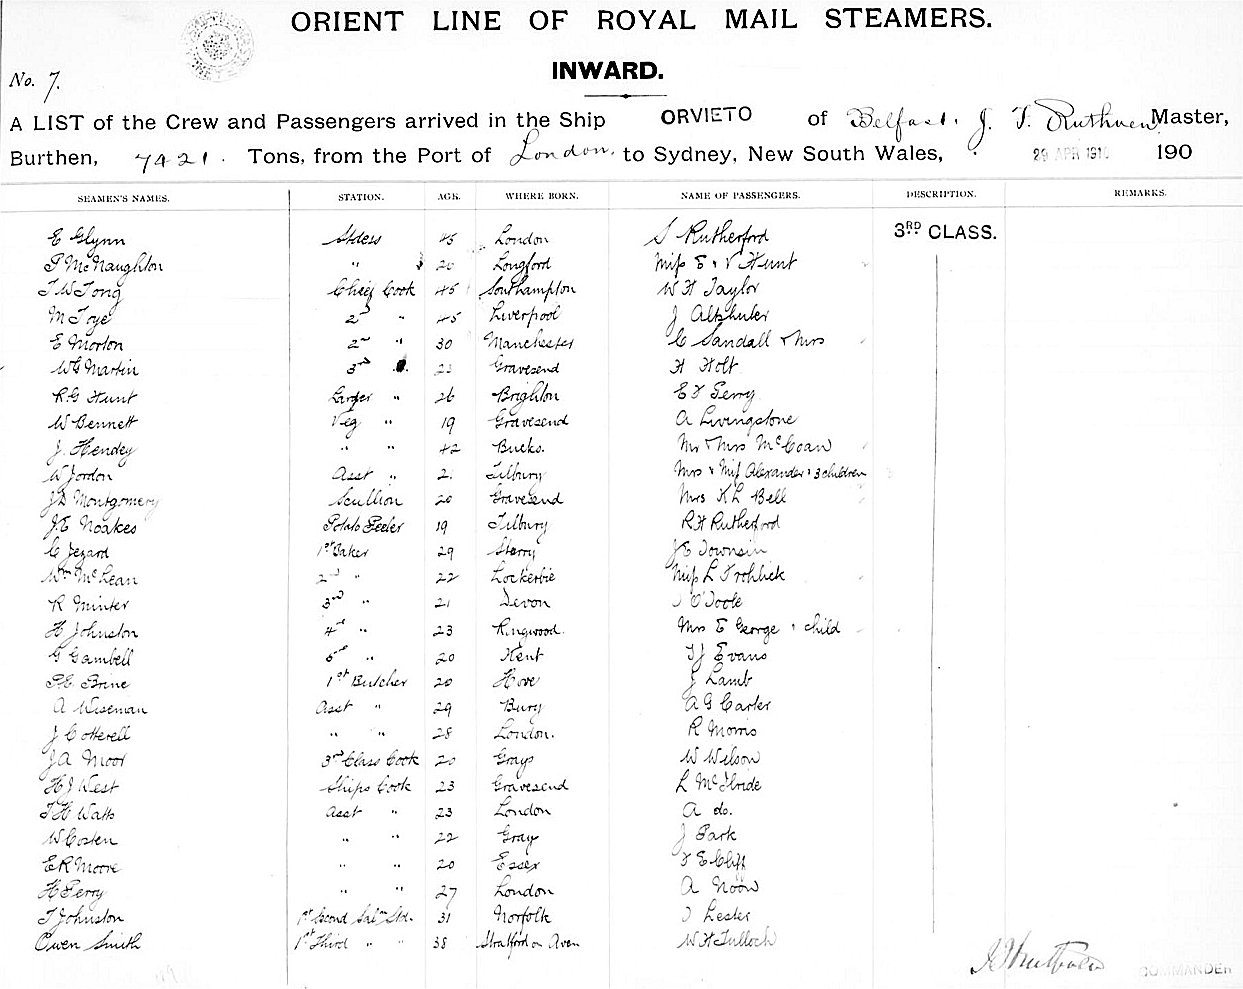 ORIENT LINE OF ROYAL MAIL STEAMERS.
No. 7.
INWARD.
A LIST of the Crew and Passengers arrived in the Ship ORVIETO of Belfast, J. F. Ruthven Master,
Burthen, 7421. Tons, from the Port of London, to Sydney, New South Wales, 29 APR 1910 190
SEAMEN'S NAMES. STATION. AGE. WHERE BORN. NAME OF PASSENGERS. DESCRIPTION. REMARKS.
E Glynn Stdess 45 London S Rutherford 3RD CLASS.
P McNaughton " 20 Longford Miss E & V Hunt
T W Tong Chief Cook 45 Southampton W H Taylor
M Joye 2nd " 45 Liverpool J Altshuler
E Morton 2nd " 30 Manchester C Sandall & Mrs
W G Martin 3rd " 21 Gravesend H Holt
R G Hunt Larder " 26 Brighton E F Perry
W Bennett Veg " 19 Gravesend A Livingstone
J. Hendey " " 42 Bucks. Mr & Mrs McCoan
W Jordon Asst " 21 Tilbury Mrs & Miss Alexander & 3 children
J D Montgomery Scullion 20 Gravesend Mrs K L Bell
J. E Noakes Potato Peeler 19 Tilbury R H Rutherford
C Jezard 1st Baker 29 J E
Wm McLean 2nd " 22 Lockerbie Miss L Frohlick
R Minter 3rd " 21 Devon J O'Toole
H Johnston 4th " 23 Ringwood. Mrs E George & child
G Gambell 5th " 20 Kent T J Evans
P. E. Brine 1st Butcher 20 Hove J Lamb
A Wiseman Asst " 29 Bury A G Carter
J Cotterell " " 28 London. R Morris
J A Moor 3rd Class Cook 20 Grays W Wilson
H J West Ships Cook 23 Gravesend L
T H Watts Asst " 23 London A do.
W Costen " " 22 Grays J Park
E R Moore " " 20 Essex F E Cliff
H Perry " " 27 London A Noon
T Johnston 1st Second Saln Std. 31 Norfolk J Lester
Owen Smith 1st Third " " 38 Stratford on Avon W H Tulloch
J F Ruthven COMMANDER